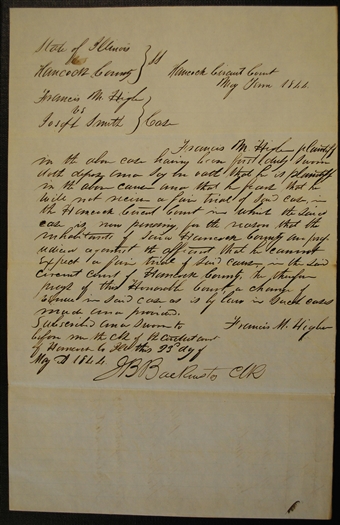 State of Illinois
Hancock County } ss Hancock Circuit Court
May Term 1844
Francis M. Higbee
vs
Joseph Smith } Case
Francis M. Higbee plaintiff
in the above case having been first duly sworn
doth depose and say on oath that he is plaintiff
in the above cause and that he fears that he
will not receive a fair trial of said case, in
the Hancock Circuit Court in which the said
case is now pending, for the reason that the
inhabitants of said Hancock County are pre
judiced against the affiant that he cannot
expect a fair trial of said cause in the said
Circuit Court of Hancock County, he therefore
prays of this Honorable Court, a change of
Venue in said case as is by law in such cases
made and provided.
Subscribed and sworn to Francis M. Higbee
before me the Clk of the Circuit Court
of Hancock Co this 23d day of
May AD 1844
J B Backenstos Clk